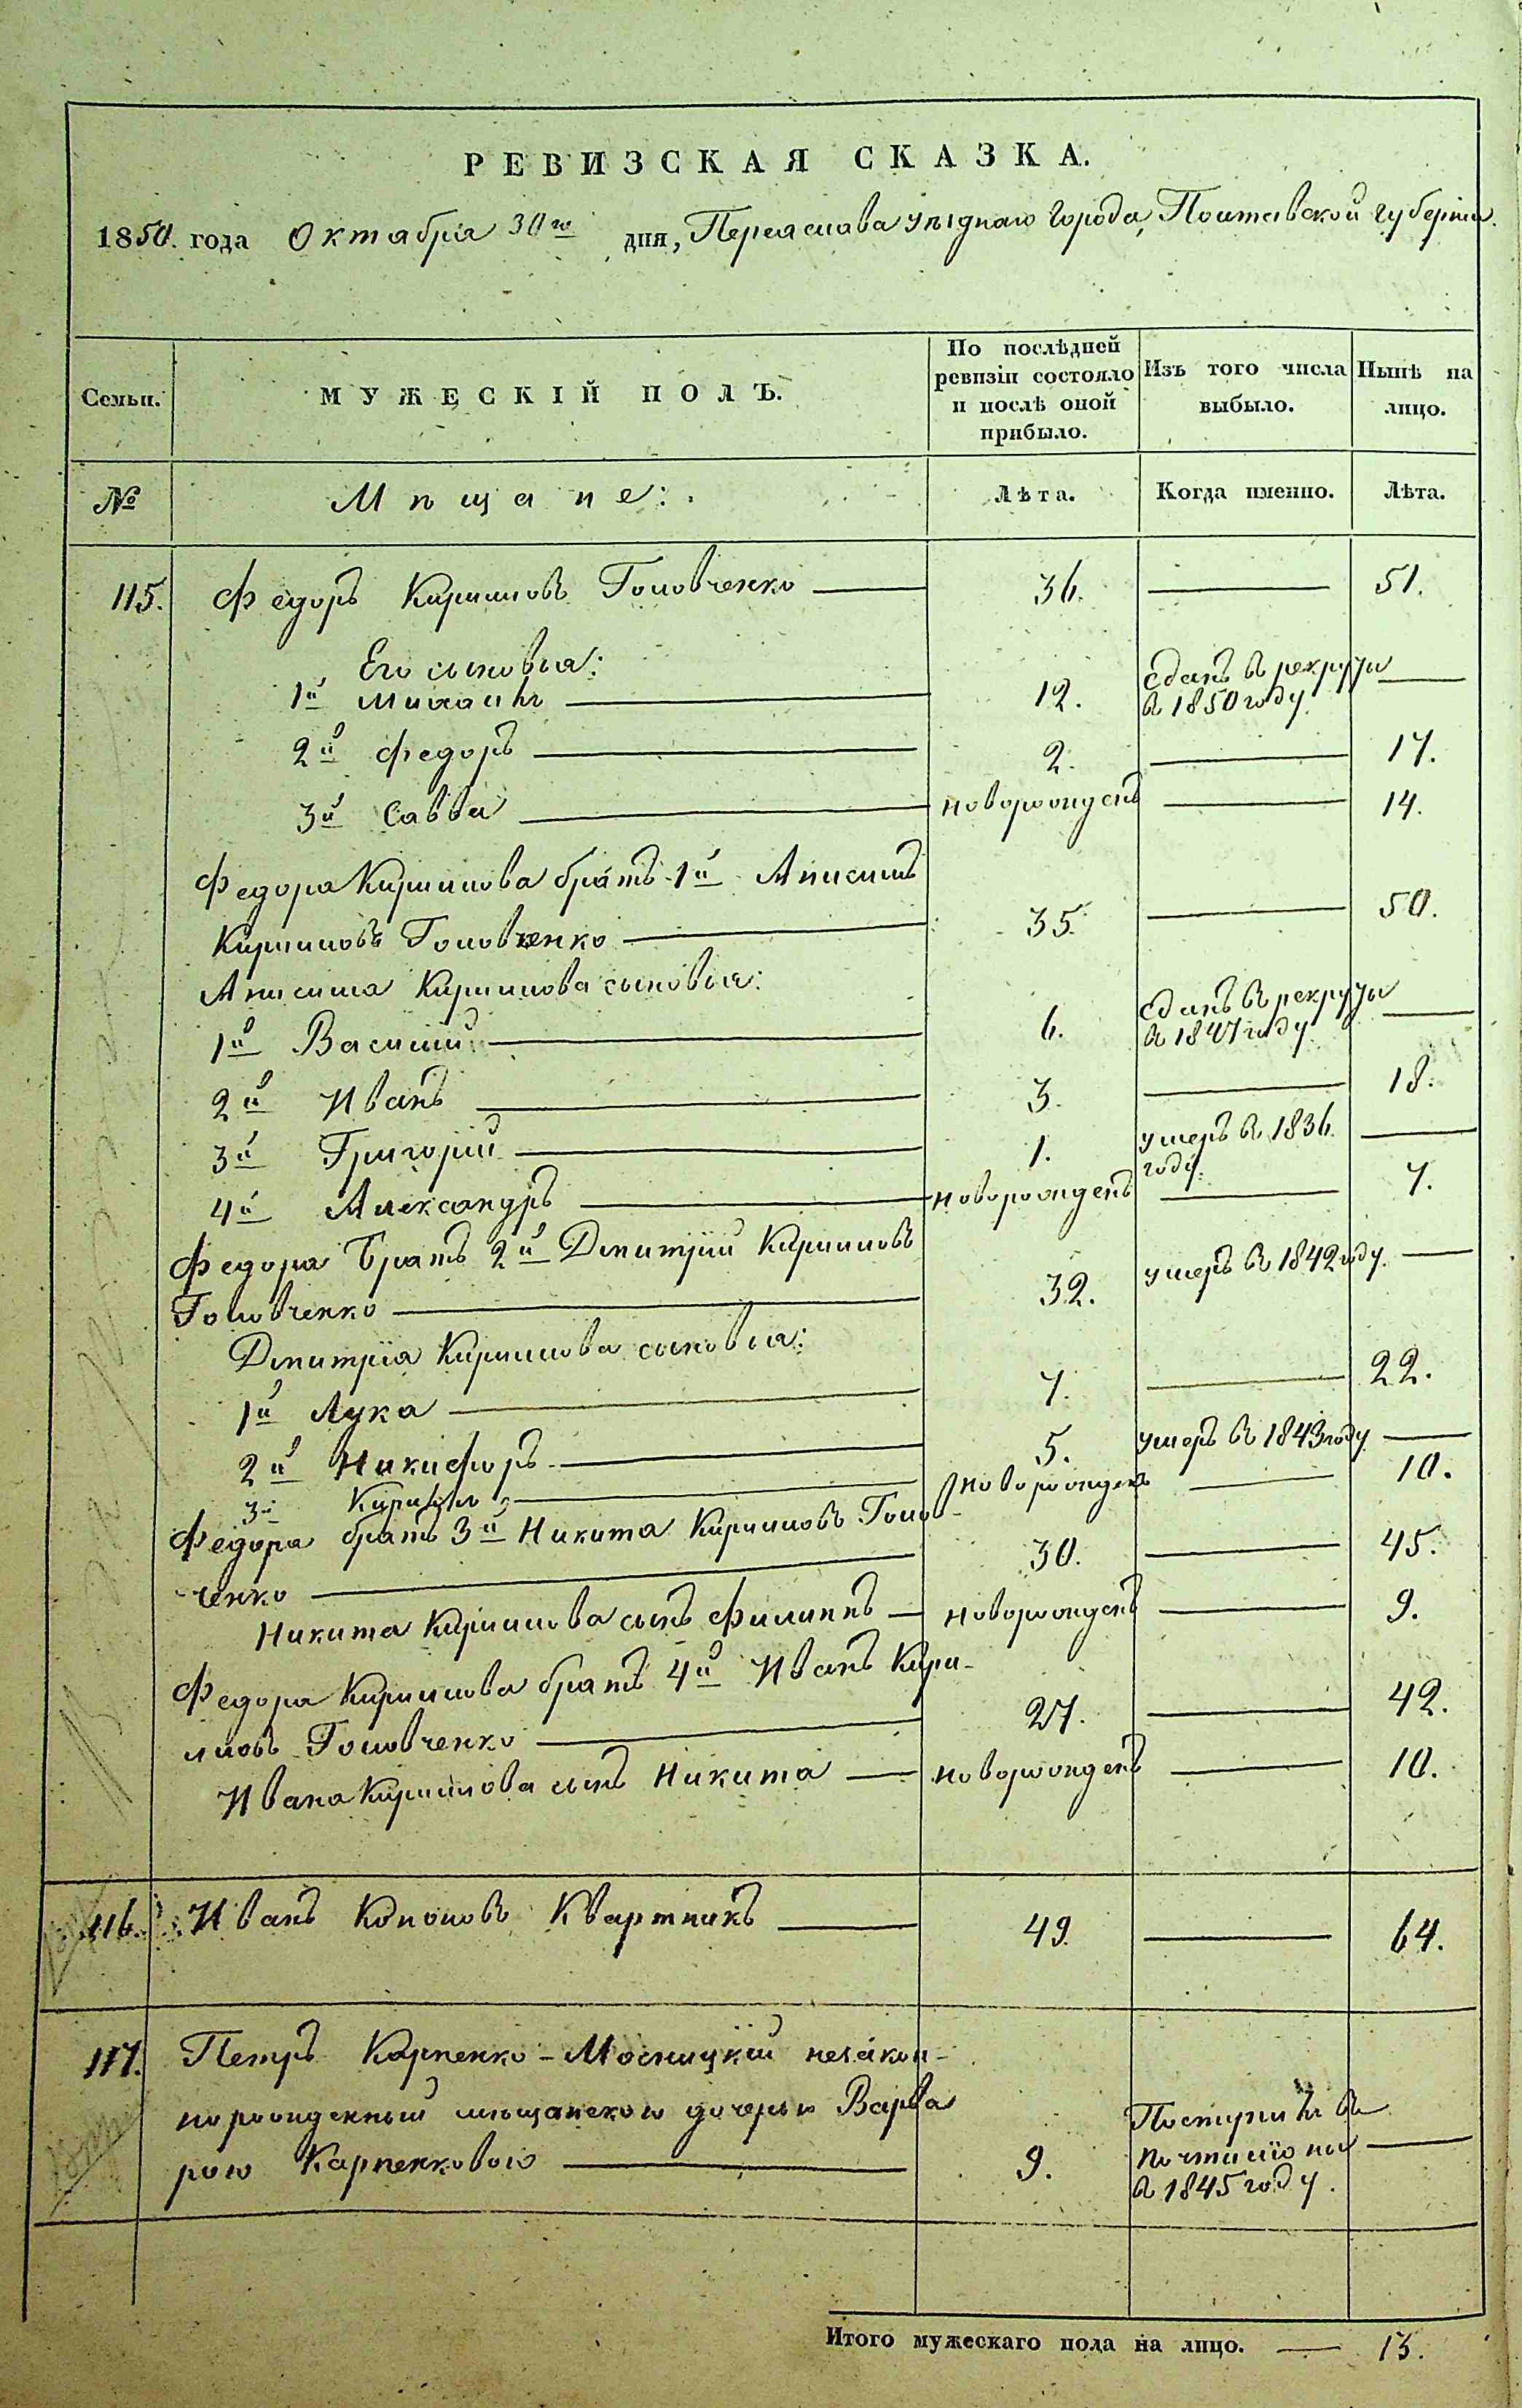 РЕВИЗСКАЯ СКАЗКА.
1850. года Октября 30го дня, Переяслава уѣзднаго города, Полтавской губерніи.
Семьи. МУЖЕСКІЙ ПОЛЪ. По послѣдней ревизіи состояло и послѣ оной прибыло. Изъ того числа выбыло. Нынѣ на лицо.
№ Мѣщане: Лѣта. Когда именно. Лѣта.
115. Федоръ Кириловъ Головченко — 36. — 51.
Его сыновья:
1й Михаилъ — 12. Сданъ въ рекруты в 1850 году. —
2й Федоръ — 2. — 17.
3й Савва — новорожденъ — 14.
Федора Кирилова братъ 1й Анисимъ
Кириловъ Головченко — 35. — 50.
Анисима Кирилова сыновья:
1й Василий — 6. Сданъ въ рекруты в 1847 году. —
2й Иванъ — 3. — 18.
3й Григорий — 1. умеръ в 1836. году. —
4й Александръ — новорожденъ — 7.
Федора братъ 2й Дмитрій Кириловъ
Головченко — 32. умеръ в 1842 году. —
Дмитрія Кирилова сыновья:
1й Лука — 7. — 22.
2й Никифоръ — 5. умеръ в 1843 году. —
3й Кирилъ — новорожденъ — 10.
Федора братъ 3й Никита Кириловъ Голов-
ченко — 30. — 45.
Никита Кирилова сынъ Филиппъ — новорожденъ — 9.
Федора Кирилова братъ 4й Иванъ Кири-
ловъ Головченко — 27. — 42.
Ивана Кирилова сынъ Никита — новорожденъ — 10.
116. Иванъ Кононовъ Квартникъ — 49. — 64.
117. Петръ Карпенко-Мосницкій незакон-
норожденный мѣщанскою дочерью Варва
рою Карпенковою — 9. Поступилъ в почталіоны в 1845 году. —
Итого мужескаго пола на лицо. — 13.